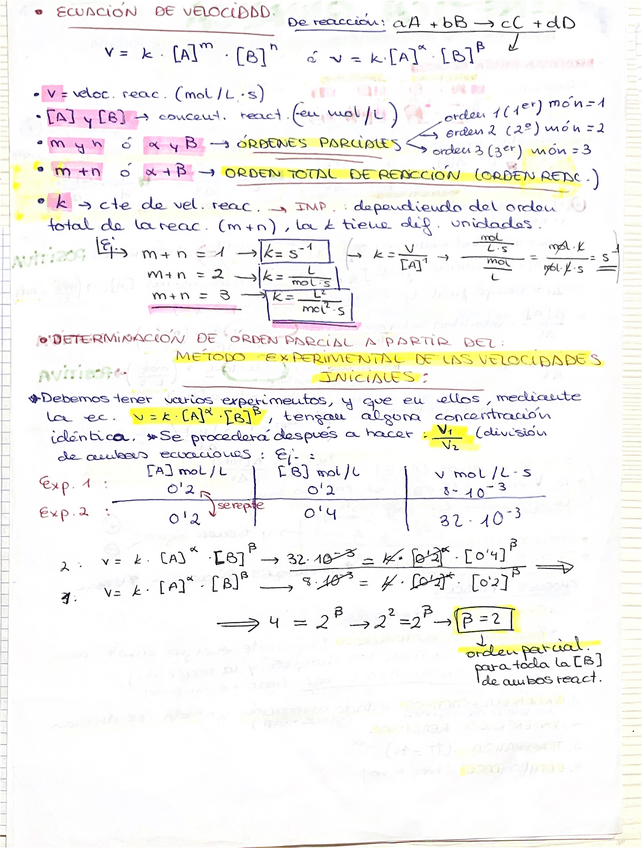 • ECUACIÓN DE VELOCIDAD. De reacción: aA + bB → cC + dD
v = k · [A]^m · [B]^n ó v = k · [A]^α · [B]^β
• v = veloc. reac. (mol/L·s)
• [A] y [B] → concent. react. (en mol/L)
orden 1 (1er) m ó n = 1
• m y n ó α y β → ÓRDENES PARCIALES orden 2 (2º) m ó n = 2
orden 3 (3er) m ó n = 3
• m+n ó α+β → ORDEN TOTAL DE REACCIÓN (ORDEN REAC.)
• k → cte de vel. reac. → IMP. : dependiendo del orden
total de la reac. (m+n), la k tiene dif. unidades.
Ej → m+n = 1 → k = s⁻¹ (→ k = V/[A]¹ → (mol/L·s)/(mol/L) = mol·L/mol·L·s = s⁻¹)
m+n = 2 → k = L/mol·s
m+n = 3 → k = L²/mol²·s
• DETERMINACIÓN DE ÓRDEN PARCIAL A PARTIR DEL:
MÉTODO EXPERIMENTAL DE LAS VELOCIDADES
INICIALES:
*Debemos tener varios experimentos, y que en ellos, mediante
la ec. v = k·[A]^α·[B]^β, tengan alguna concentración
idéntica. *Se procederá después a hacer: V1/V2 (división
de ambas ecuaciones: Ej.:
[A] mol/L [B] mol/L v mol/L·s
Exp. 1: 0'2 0'2 8·10⁻³
se repite
Exp. 2: 0'2 0'4 32·10⁻³
2: v = k·[A]^α·[B]^β → 32·10⁻³ = k·[0'2]^α·[0'4]^β ⟹
1: v = k·[A]^α·[B]^β → 8·10⁻³ = k·[0'2]^α·[0'2]^β
⟹ 4 = 2^β → 2² = 2^β → β = 2
orden parcial.
para toda la [B]
de ambos react.